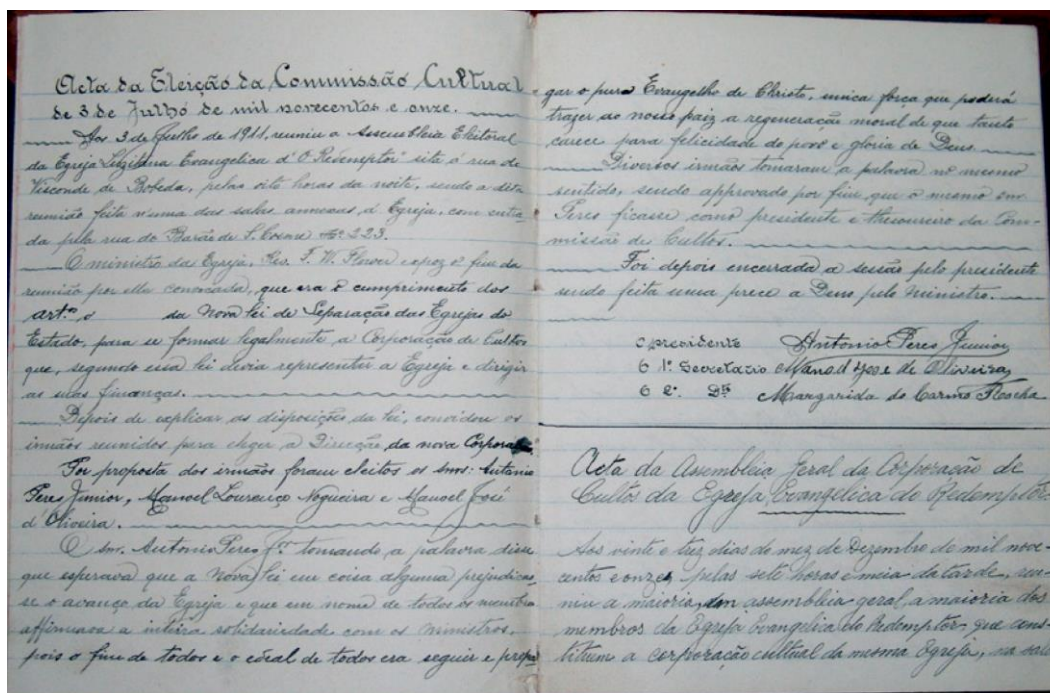 Acta da Eleição da Commissão Cultural
de 3 de Julho de mil novecentos e onze.
Aos 3 de Julho de 1911, reuniu a Assembleia Eleitoral
da Egreja Lusitana Evangelica d'"O Redemptor" sita á rua de
Visconde de Bobeda, pelas oito horas da noite, sendo a dita
reunião feita n'uma das salas annexas, á Egreja, com entra
da pela rua do Barão de S. Cosme Nº 223.
O ministro da Egreja, Rev. F. W. Flower expoz o fim da
reunião por elle convocada, que era o cumprimento dos
art.os da nova lei de Separação das Egrejas do
Estado, para se formar legalmente, a Corporação de Cultos
que, segundo essa lei devia representar a Egreja e dirigir
as suas finanças.
Depois de explicar as disposições da lei, convidou os
irmãos reunidos para eleger a Direcção, da nova Corporação.
Por proposta dos irmãos foram eleitos os snrs: Antonio
Peres Junior, Manoel Lourenço Nogueira e Manoel José
d'Oliveira.
O snr. Antonio Peres Jor tomando a palavra disse
que esperava que a nova lei em coisa alguma prejudicas-
se o avanço da Egreja e que em nome de todos os membros
affirmava a inteira solidariedade com os ministros,
pois o fim de todos e o ideal de todos era seguir e propa
gar o puro Evangelho de Christo, unica força que poderá
trazer ao nosso paiz a regeneração moral de que tanto
carece para felicidade do povo e gloria de Deus.
Diversos irmãos tomaram a palavra no mesmo
sentido, sendo approvado por fim que o mesmo snr.
Peres ficasse como presidente e thesoureiro da Com-
missão de Cultos.
Foi depois encerrada a sessão pelo presidente
sendo feita uma prece a Deus pelo ministro.
O presidente Antonio Peres Junior
O 1º Secretario Manoel José de Oliveira
O 2º Dº Margarida do Carmo Rocha
Acta da Assembleia Geral da Corporação de
Cultos da Egreja Evangelica do Redemptor
Aos vinte e trez dias do mez de Dezembro de mil nove-
centos e onze, pelas sete horas e meia da tarde, reu-
niu a maioria, em assembleia geral, a maioria dos
membros da Egreja Evangelica do Redemptor, que cons-
tituem a corporação cultual da mesma Egreja, na sala